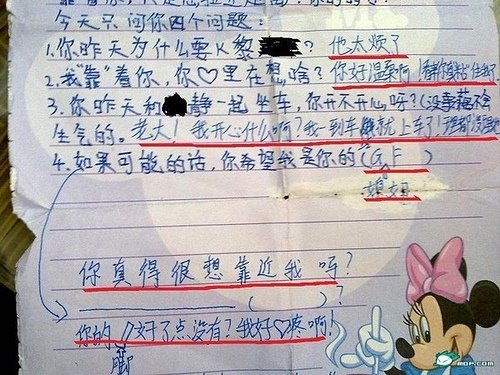 今天只问你四个问题：
1.你昨天为什么要K黎？他太烦了
2.我"靠"着你，你♡里在想啥？你好温柔啊！
3.你昨天和静一起坐车，你开不开心呀？(没事我不会
生气的。老大！我开心什么啊？我一到车就上车了！
4.如果可能的话，你希望我是你的(G.F )
媳妇
你真得很想靠近我吗？
( )？
你的脚好了点没有？我好♡疼啊！
MOP.COM